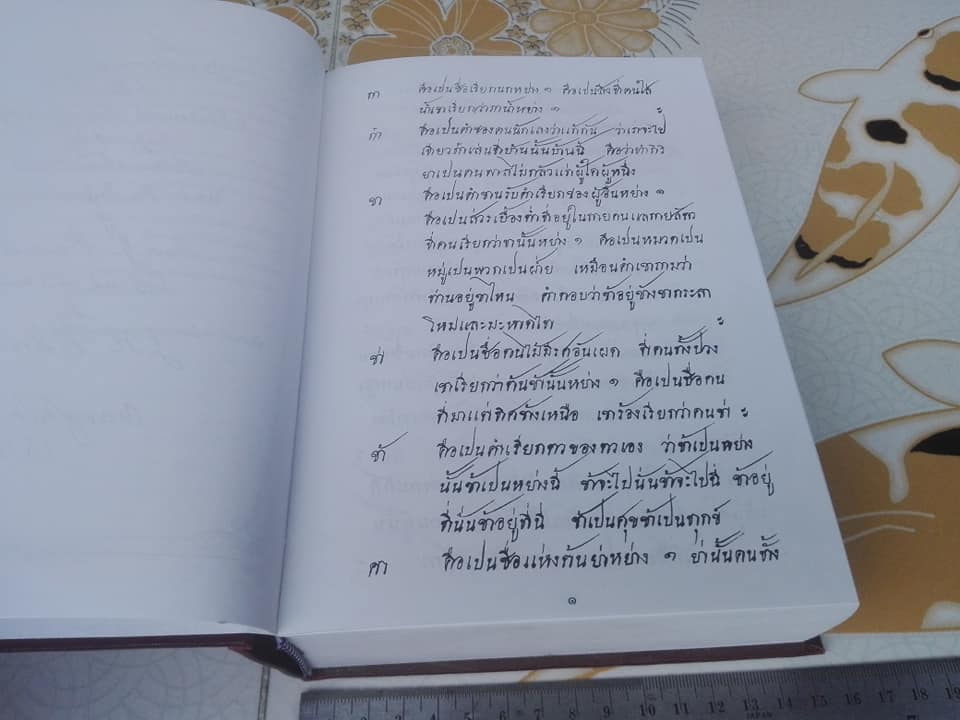 กา คือเปนชื่อเรียกนกหย่าง ๑ คือเปนสิ่งที่คนใส่
น้ำเขาเรียกว่ากาน้ำหย่าง ๑
ก้า คือเปนคำของคนนักเลงว่าแก้กัน ว่าเราจะไป
เที่ยวรักเล่นที่บ้านนั้นบ้านนี้
ยาเปนคนพาลไม่กลัวแก่ผู้ใดผู้หนึ่ง
ขา คือเปนคำขานรับคำเรียกของผู้อื่นหย่าง ๑
คือเปนอยู่ในกายคนแลกายสัตว
ที่คนเรียกว่าขานั้นหย่าง ๑ คือเปนหมวดเปน
หมู่เปนพวกเปนฝ่าย เหมือนคำเขาถามว่า
ท่านอยู่ขาไหน คำตอบว่าข้าอยู่ข้างขากระลา
โหมแลมะหาดไท
ข่า คือเปนชื่อต้นไม้ ที่คนทั้งปวง
เขาเรียกว่าต้นข่านั้นหย่าง ๑ คือเปนชื่อคน
ที่มาแต่ทิศข้างเหนือ เขาร้องเรียกว่าคนข่า ะ
ข้า คือเปนคำเรียกตัวของตัวเอง ว่าข้าเปนหย่าง
นั้นข้าเปนหย่างนี้ ข้าจะไปนั่นข้าจะไปนี่ ข้าอยู่
ที่นั่นข้าอยู่ที่นี่ ข้าเปนศุขข้าเปนทุกข์
คา คือเปนชื่อแห่งต้นย่าหย่าง ๑ ย่านั้นคนทั้ง
๑
JAPAN